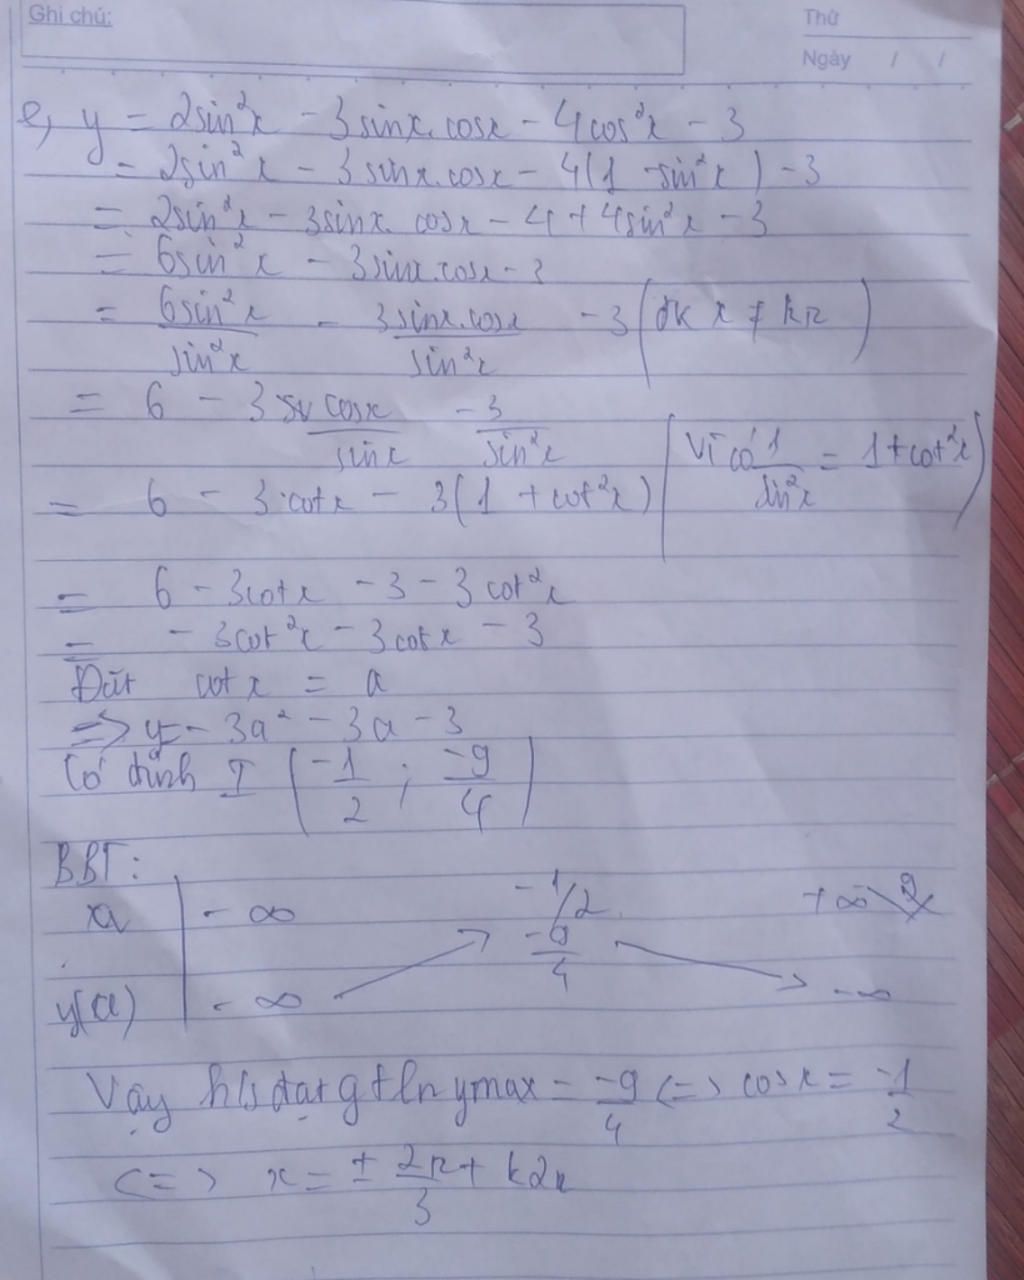 Ghi chú:
Thứ
Ngày / /
e, y = 2sin²x - 3sinx.cosx - 4cos²x - 3
= 2sin²x - 3sinx.cosx - 4(1 - sin²x) - 3
= 2sin²x - 3sinx.cosx - 4 + 4sin²x - 3
= 6sin²x - 3sinx.cosx - 3
= 6sin²x/sin²x - 3sinx.cosx/sin²x - 3 (đk x ≠ kπ)
= 6 - 3 cosx/sinx - 3/sin²x (Vì có 1/sin²x = 1 + cot²x)
= 6 - 3.cotx - 3(1 + cot²x)
= 6 - 3cotx - 3 - 3cot²x
= - 3cot²x - 3cotx - 3
Đặt cotx = a
=> y = - 3a² - 3a - 3
Có đỉnh I (-1/2 ; -9/4)
BBT:
a - ∞ -1/2 + ∞
-9/4
y(a) - ∞ - ∞
Vậy h/s đạt gtln ymax = -9/4 <=> cosx = -1/2
<=> x = ± 2π/3 + k2π